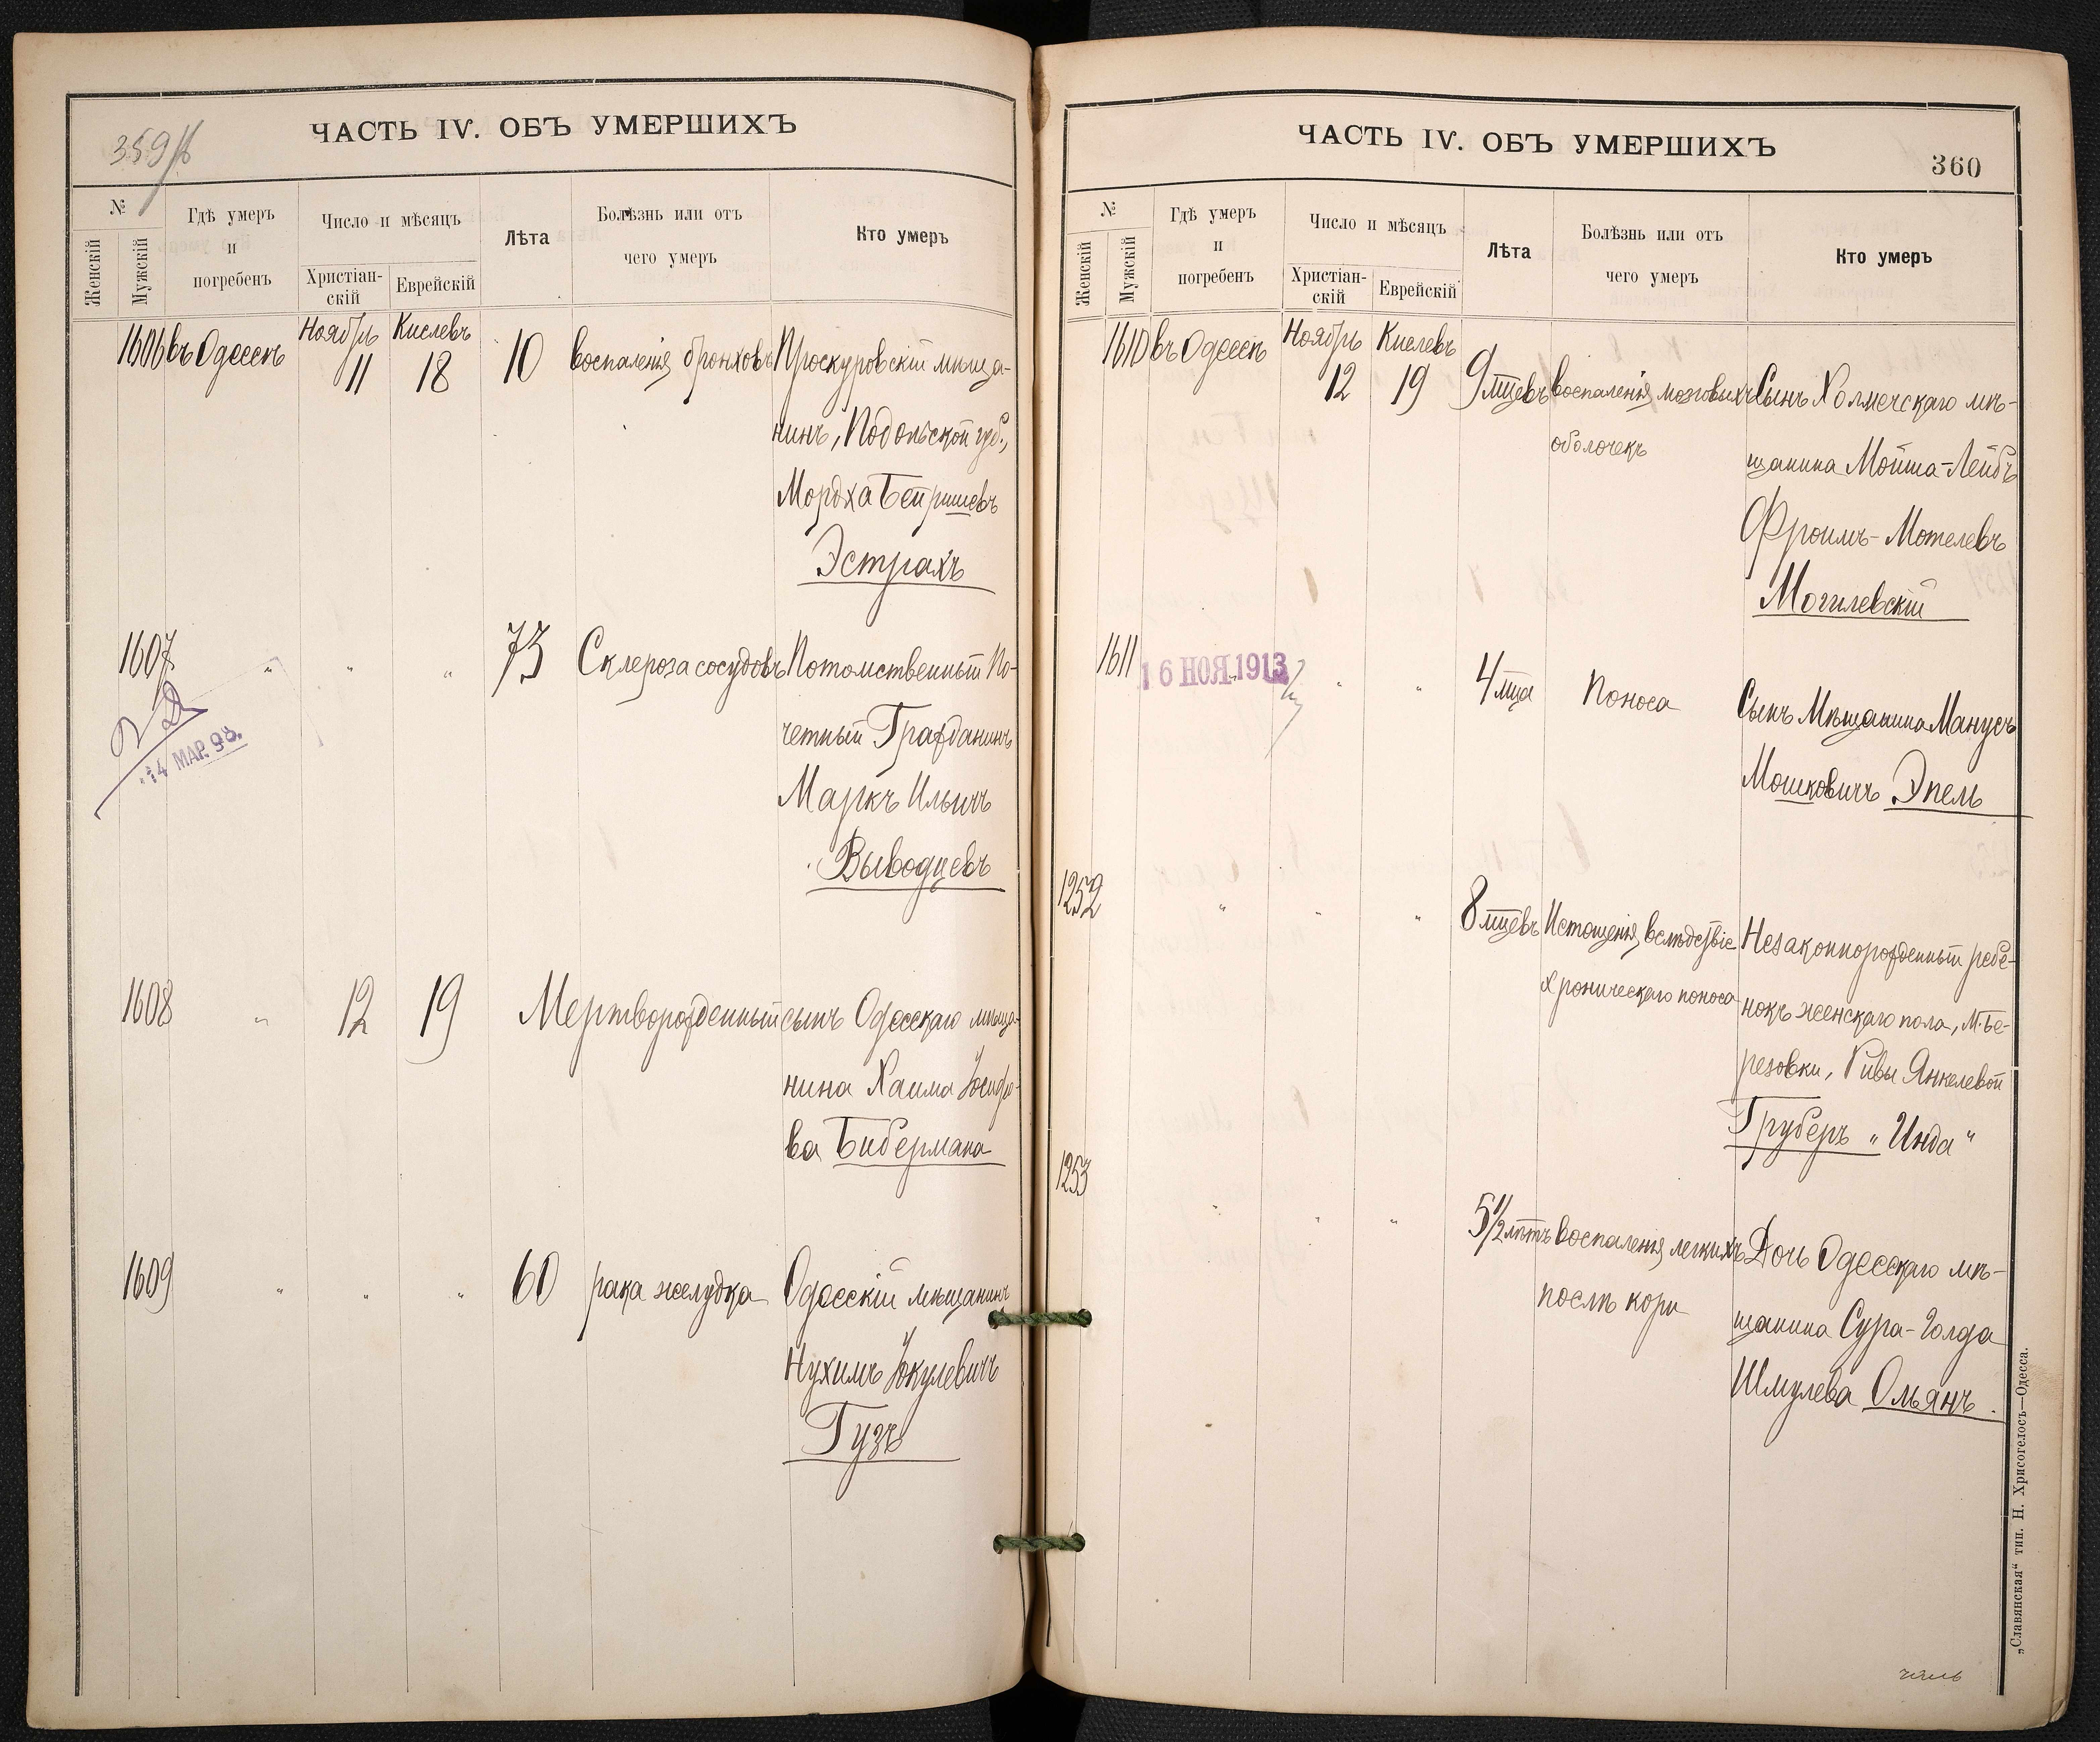 359 
ЧАСТЬ IV. ОБЪ УМЕРШИХЪ
№
Женскій
Мужскій
Гдѣ умеръ
и
погребенъ
Число и мѣсяцъ
Христіан-
скій
Еврейскій
Лѣта
Болѣзнь или отъ
чего умеръ
Кто умеръ
1606 въ Одессѣ Ноябрь 11 Кислевъ 18 10 воспаленія бронховъ Проскуровскій мѣща-
нинъ, Подольской губ.,
Мордха Беришевъ
Эстрахъ
1607 " " " 73 Склероза сосудовъ Потомственный По-
четный Гражданинъ
Маркъ Ильичъ
Выводцевъ
14 МАР. 98.
1608 " 12 19 Мертворожденный сынъ Одесскаго мѣща-
нина Хаима Іосифо-
ва Бибермана
1609 " " " 60 рака желудка Одесскій мѣщанинъ
Нухимъ Іокулевичъ
Гузъ
ЧАСТЬ IV. ОБЪ УМЕРШИХЪ
360
№
Женскій
Мужскій
Гдѣ умеръ
и
погребенъ
Число и мѣсяцъ
Христіан-
скій
Еврейскій
Лѣта
Болѣзнь или отъ
чего умеръ
Кто умеръ
1610 въ Одессѣ Ноябрь 12 Кислевъ 19 9 мцевъ воспаленія мозговыхъ Сынъ Холмечскаго мѣ-
оболочекъ щанина Мойша-Лейбъ
Фроимъ-Мотелевъ
Могилевскій
1611 " " " 4 мца Поноса Сынъ Мѣщанина Манусъ
16 НОЯ 1913
Мошковичъ Эпель
1252 " " " 8 мцевъ Истощенія вслѣдствіе Незаконнорожденный ребе-
хроническаго поноса нокъ женскаго пола, М. Бе-
резовки, Ривы Янкелевой
Груберъ „Инда"
1253 " " " 5 1/2 лѣтъ воспаленія легкихъ Дочь Одесскаго мѣ-
послѣ кори щанина Сура-Голда
Шмулева Ольянъ.
„Славянская" тип. Н. Хрисогелосъ—Одесса.